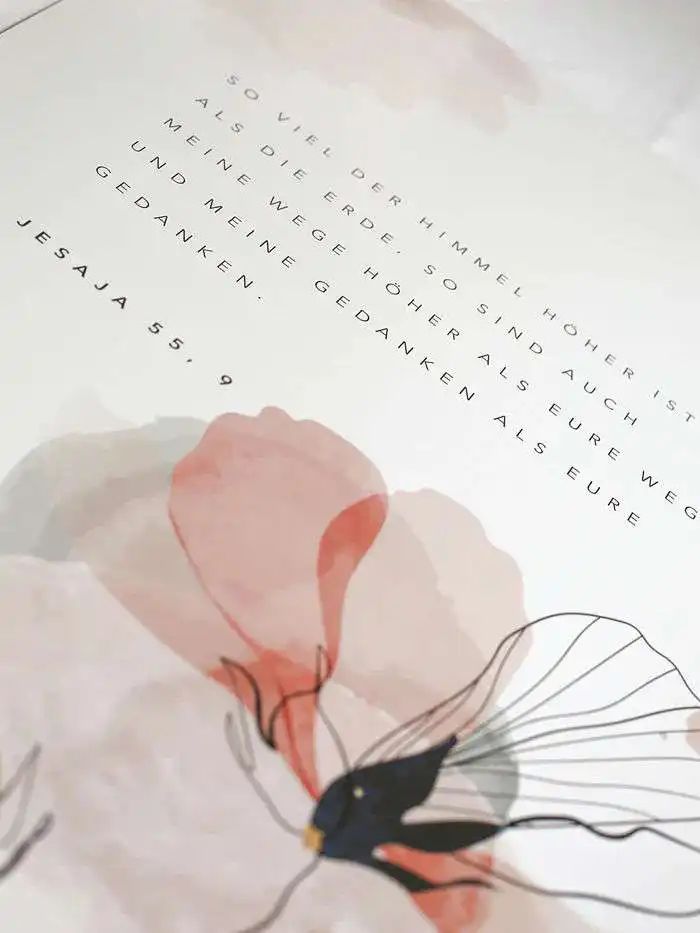 SO VIEL DER HIMMEL HÖHER IST
ALS DIE ERDE, SO SIND AUCH
MEINE WEGE HÖHER ALS EURE WEG
UND MEINE GEDANKEN ALS EURE
GEDANKEN.
JESAJA 55, 9